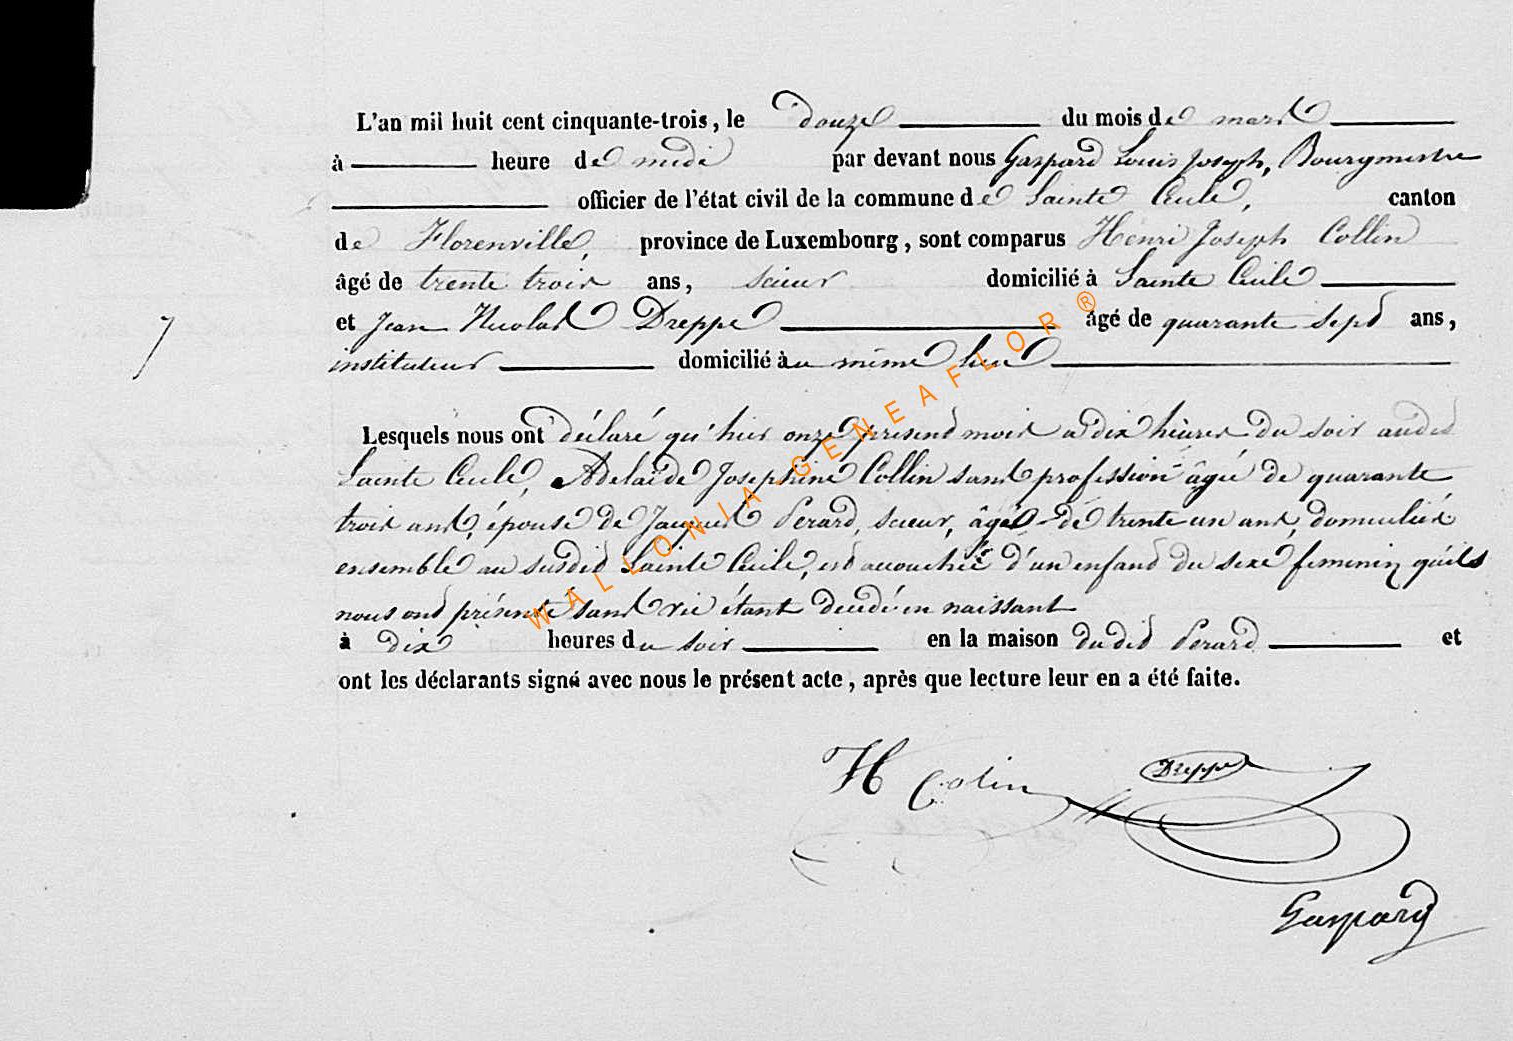 L'an mil huit cent cinquante-trois, le douze du mois de mars
à heure de midi par devant nous Gaspard Louis Joseph, Bourgmestre
officier de l'état civil de la commune de Sainte Cecile, canton
de Florenville, province de Luxembourg, sont comparus Henri Joseph Collin
âgé de trente trois ans, scieur domicilié à Sainte Cecile
et Jean Nicolas Dreppe âgé de quarante sept ans,
7
instituteur domicilié au même lieu
Lesquels nous ont déclaré qu'hier onze present mois a dix heures du soir audit
Sainte Cecile, Adelaïde Josephine Collin sans profession âgée de quarante
trois ans, épouse de Jacques Perard, scieur, âgé de trente un ans, domiciliés
ensemble au susdit Sainte Cecile, est accouchée d'un enfant du sexe feminin qu'ils
nous ont présenté sans vie étant decédé en naissant
à dix heures du soir en la maison dudit Perard et
ont les déclarants signé avec nous le présent acte, après que lecture leur en a été faite.
H Colin
Dreppe
Gaspard
WALLONIA-GENEAFLOR®